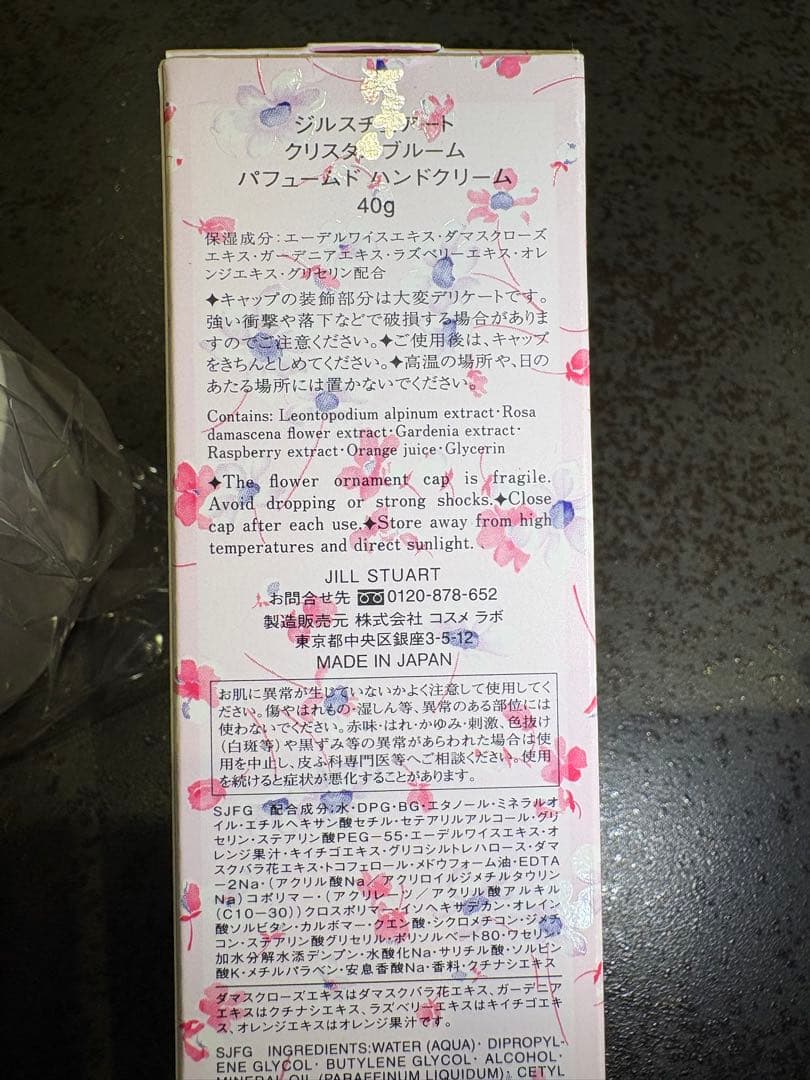 ジルスチュアート
クリスタルブルーム
パフュームド ハンドクリーム
40g
保湿成分:エーデルワイスエキス・ダマスクローズ
エキス・ガーデニアエキス・ラズベリーエキス・オレ
ンジエキス・グリセリン配合
✦キャップの装飾部分は大変デリケートです。
強い衝撃や落下などで破損する場合がありま
すのでご注意ください。✦ご使用後は、キャップ
をきちんとしめてください。✦高温の場所や、日の
あたる場所には置かないでください。
Contains: Leontopodium alpinum extract・Rosa
damascena flower extract・Gardenia extract・
Raspberry extract・Orange juice・Glycerin
✦The flower ornament cap is fragile.
Avoid dropping or strong shocks.✦Close
cap after each use.✦Store away from high
temperatures and direct sunlight.
JILL STUART
お問合せ先 0120-878-652
製造販売元 株式会社 コスメ ラボ
東京都中央区銀座3-5-12
MADE IN JAPAN
お肌に異常が生じていないかよく注意して使用してく
ださい。傷やはれもの・湿しん等、異常のある部位には
使わないでください。赤味・はれ・かゆみ・刺激、色抜け
(白斑等)や黒ずみ等の異常があらわれた場合は使
用を中止し、皮ふ科専門医等へご相談ください。使用
を続けると症状が悪化することがあります。
SJFG 配合成分:水・DPG・BG・エタノール・ミネラルオ
イル・エチルヘキサン酸セチル・セテアリルアルコール・グリ
セリン・ステアリン酸PEG-55・エーデルワイスエキス・オ
レンジ果汁・キイチゴエキス・グリコシルトレハロース・ダマ
スクバラ花エキス・トコフェロール・メドウフォーム油・EDTA
-2Na・(アクリル酸Na/アクリロイルジメチルタウリン
Na)コポリマー・(アクリレーツ/アクリル酸アルキル
(C10-30))クロスポリマー・イソヘキサデカン・オレイン
酸ソルビタン・カルボマー・クエン酸・シクロメチコン・ジメチ
コン・ステアリン酸グリセリル・ポリソルベート80・ワセリン・
加水分解水添デンプン・水酸化Na・サリチル酸・ソルビン
酸K・メチルパラベン・安息香酸Na・香料・クチナシエキス
ダマスクローズエキスはダマスクバラ花エキス、ガーデニア
エキスはクチナシエキス、ラズベリーエキスはキイチゴエキ
ス、オレンジエキスはオレンジ果汁です。
SJFG INGREDIENTS:WATER (AQUA)・DIPROPYL-
ENE GLYCOL・BUTYLENE GLYCOL・ALCOHOL・
MINERAL OIL (PARAFFINUM LIQUIDUM)・CETYL